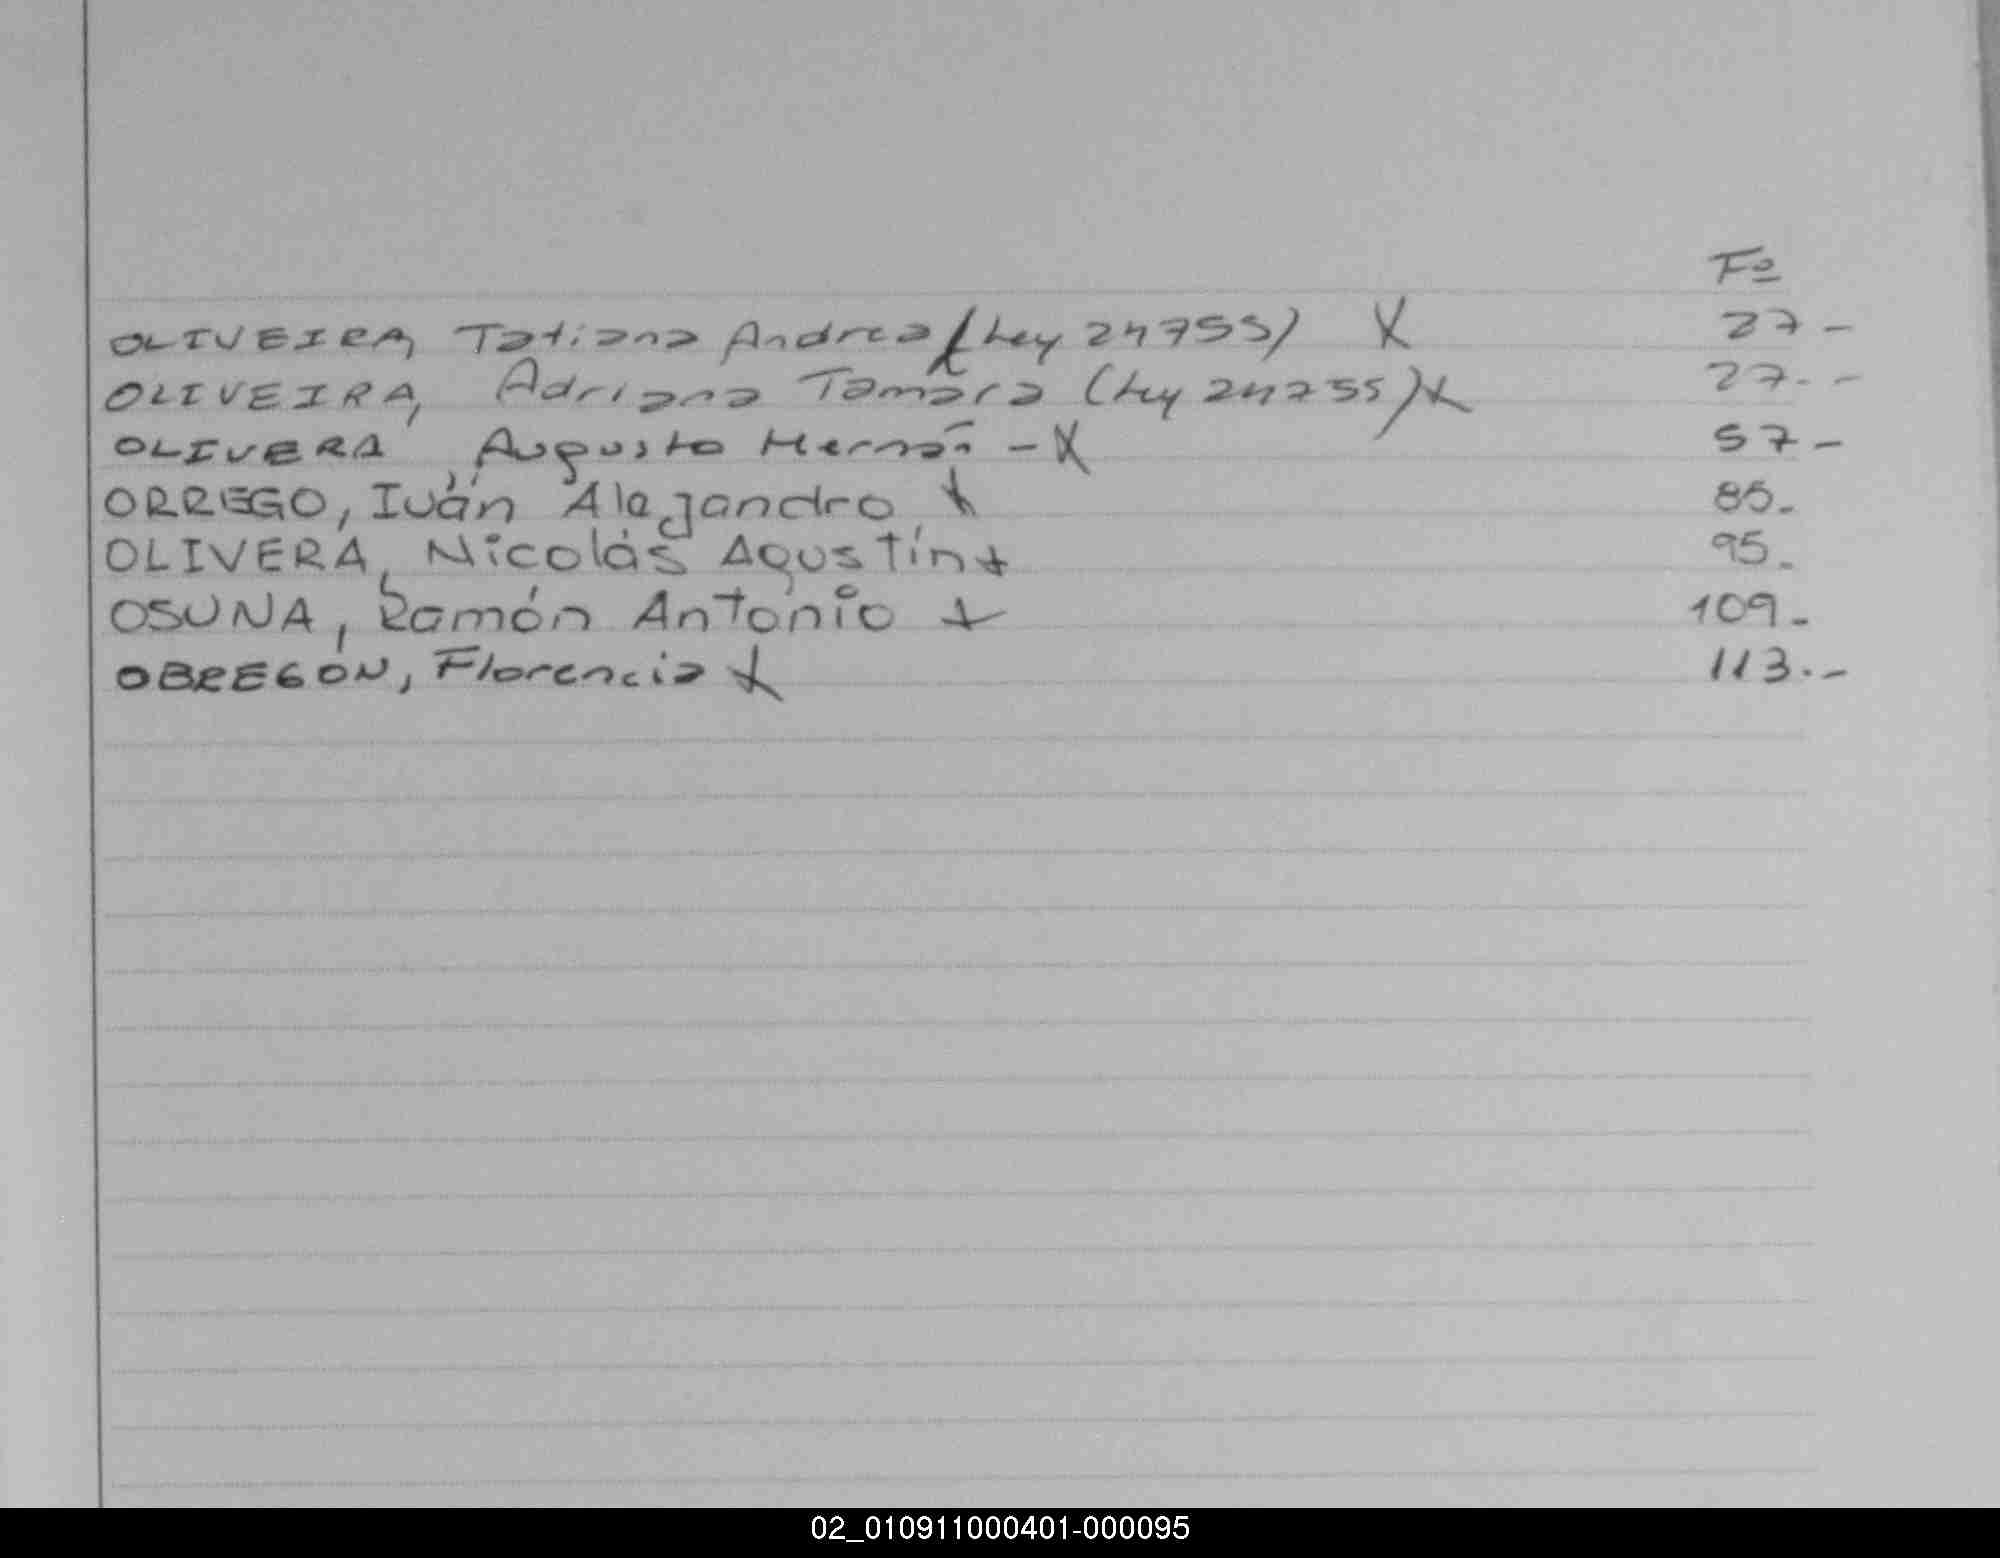 Fº
OLIVEIRA, Tatiana Andrea (Ley 24755) X 27 -
OLIVEIRA, Adriana Tamara (Ley 24755) X 27. -
OLIVERA, Augusto Hernán - X 57 -
ORREGO, Iván Alejandro X 85.
OLIVERA, Nicolás Agustín X 95.
OSUNA, Ramón Antonio X 109.
OBREGÓN, Florencia X 113. -
02_010911000401-000095